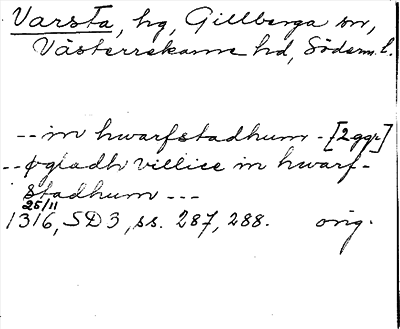 Varsta, hg, Gillberga sn,
Västerrekarne hd, Södermm. l.
-- in hwarfstadhum - [2 ggr]
-- øgladh villice in hwarf-
stadhum ---
25/11
1316, SD 3, ss. 287, 288. orig.